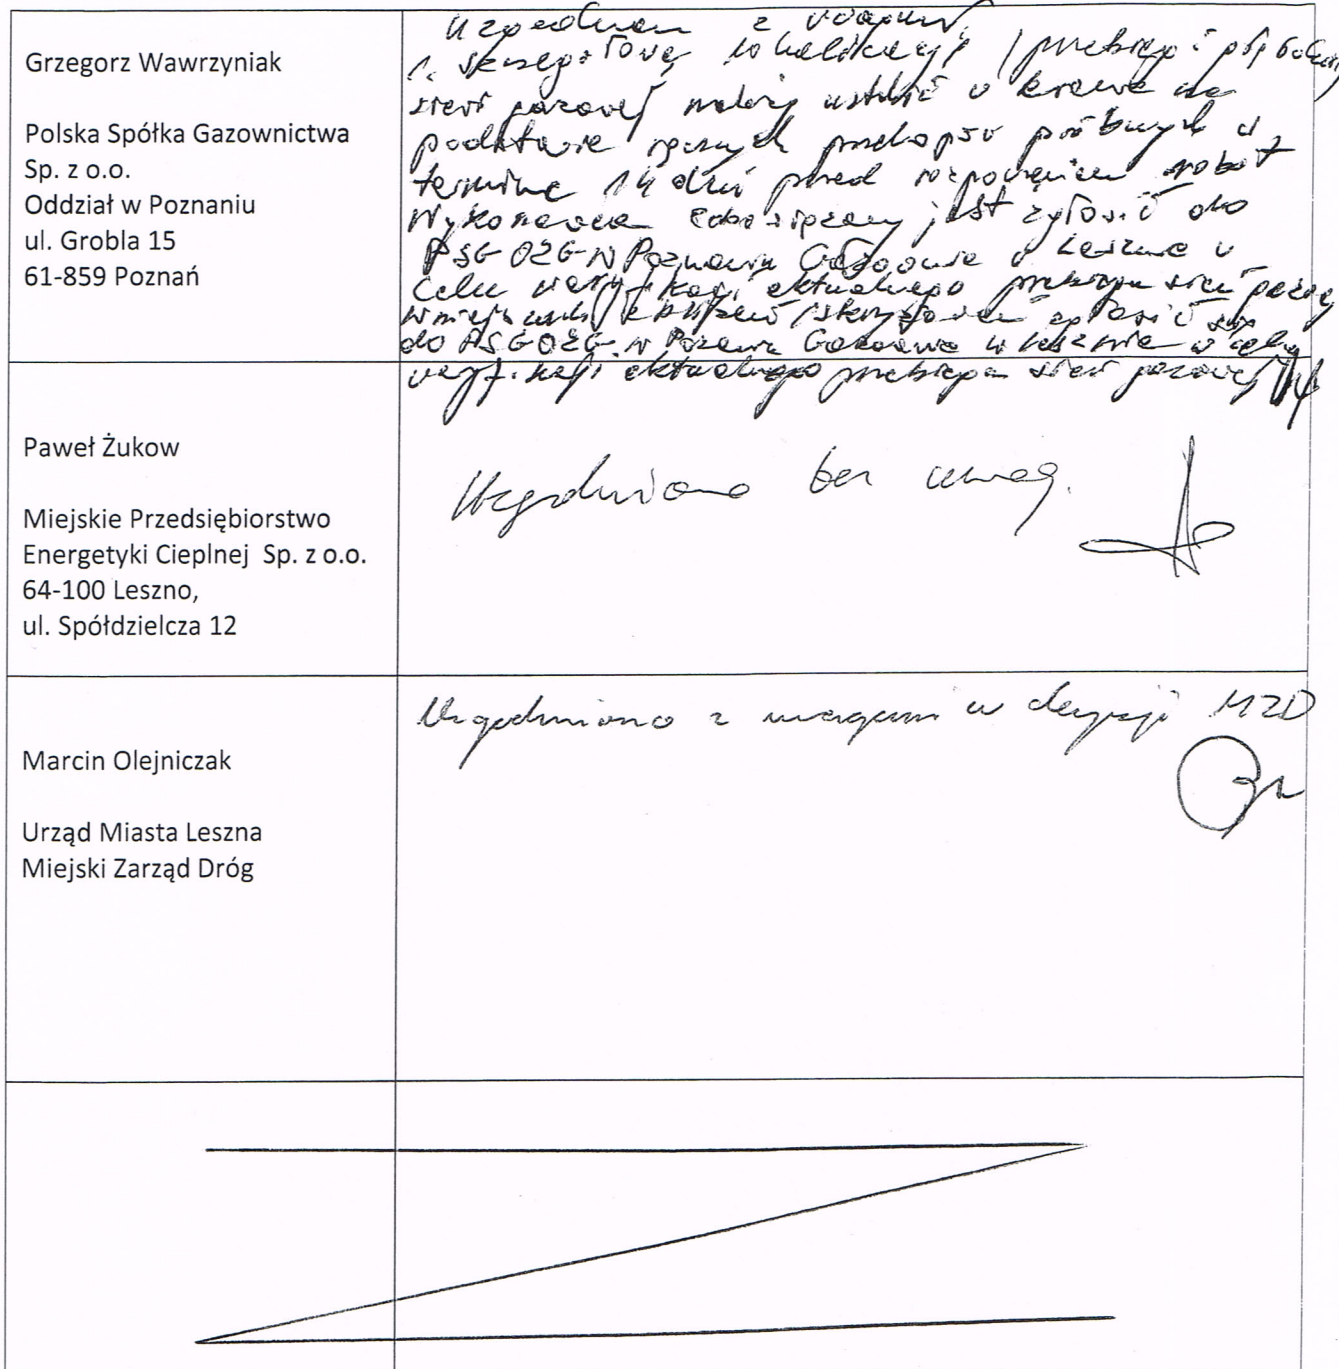 Grzegorz Wawrzyniak
Polska Spółka Gazownictwa
Sp. z o.o.
Oddział w Poznaniu
ul. Grobla 15
61-859 Poznań
z uwagami
1. szczegółową lokalizację / przebieg i
sieci gazowej należy ustalić w terenie na
podstawie ręcznych przekopów próbnych w
terminie 14 dni przed rozpoczęciem robót
Wykonawca zobowiązany jest zgłosić do
PSG OZG w Poznaniu Gazownia w Lesznie w
celu weryfikacji aktualnego przebiegu sieci
zgłosić się
do PSG OZG w Poznaniu Gazownia w Lesznie w celu
weryfikacji aktualnego przebiegu sieci gazowej
Paweł Żukow
Miejskie Przedsiębiorstwo
Energetyki Cieplnej Sp. z o.o.
64-100 Leszno,
ul. Spółdzielcza 12
Uzgodniono bez uwag.
Marcin Olejniczak
Urząd Miasta Leszna
Miejski Zarząd Dróg
Uzgodniono z uwagami w decyzji MZD